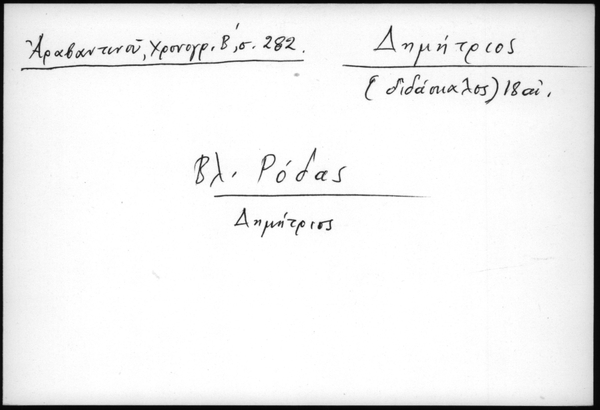 Ἀραβαντινοῦ, Χρονογρ. Β', σ. 282.
Δημήτριος
(διδάσκαλος) 18 αἰ.
Βλ. Ρόδας
Δημήτριος